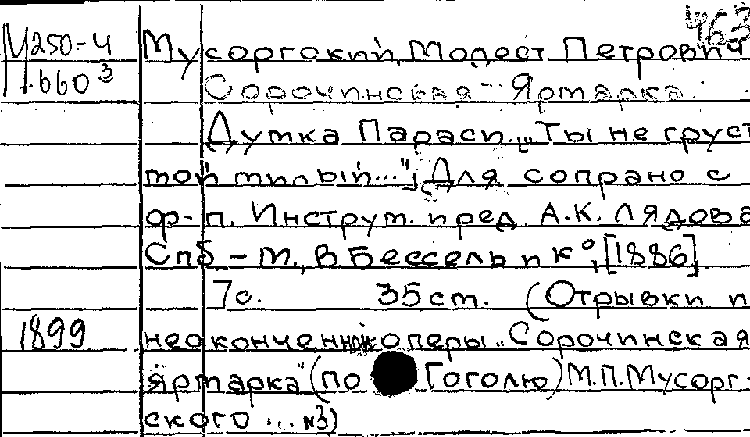 463
М250-4 Мусоргский, Модест Петрович
П.660³ Сорочинская Ярмарка.
Думка Параси „Ты не груст
мой милый..."; Для сопрано с
ф-п. Инструм. и ред. А.К. Лядова
Спб - М., В Бессель и К°, [1886]
7с. 35 cm. (Отрывки и
1899 неоконченной оперы „Сорочинская
ярмарка" (по Гоголю) М.П.Мусорг-
ского ... №3)